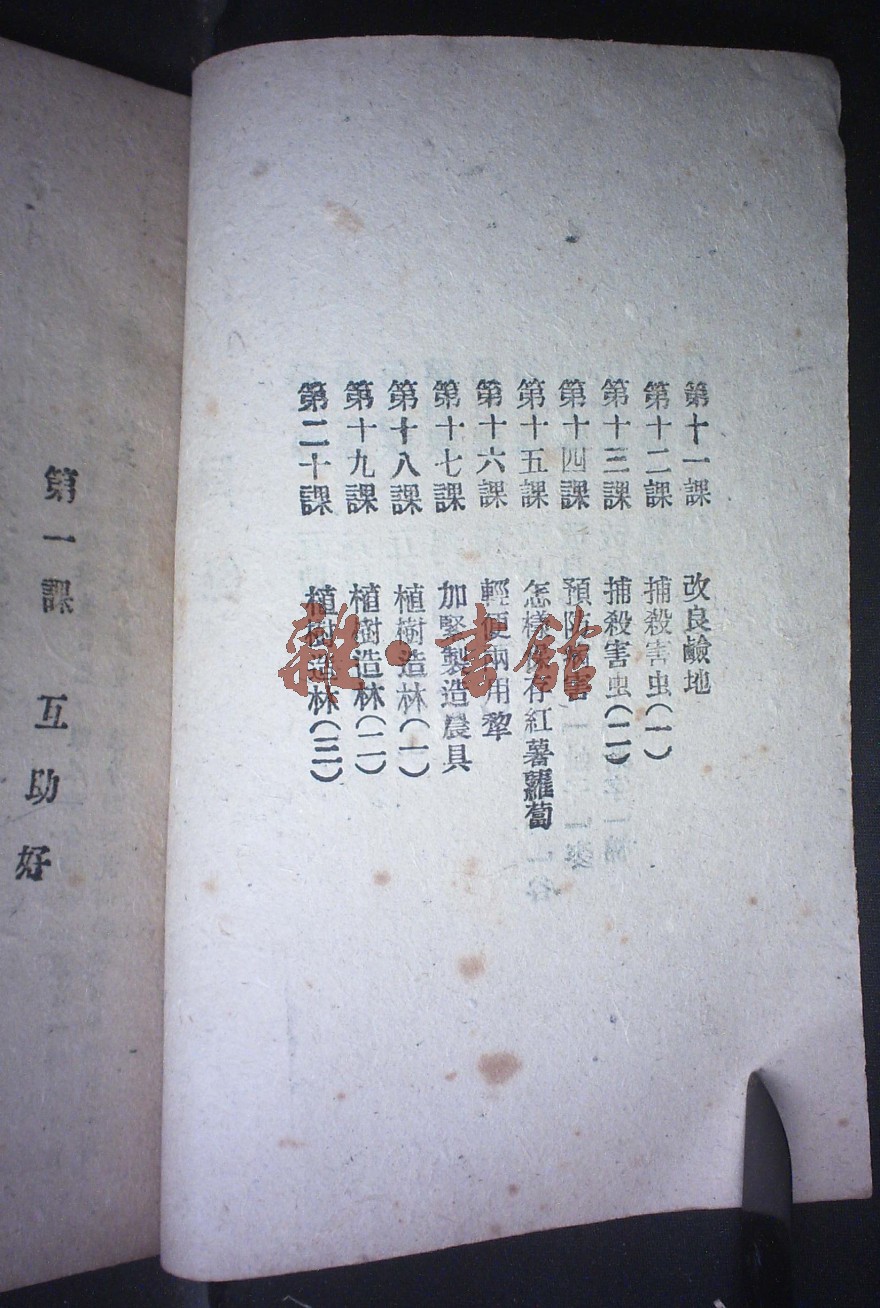 第十一課 改良鹼地
第十二課 捕殺害虫(一)
第十三課 捕殺害虫(二)
第十四課 預防病害
第十五課 怎樣保存紅薯蘿蔔
第十六課 輕便兩用犂
第十七課 加緊製造農具
第十八課 植樹造林(一)
第十九課 植樹造林(二)
第二十課 植樹造林(三)
第一課 互助好
雜·書館